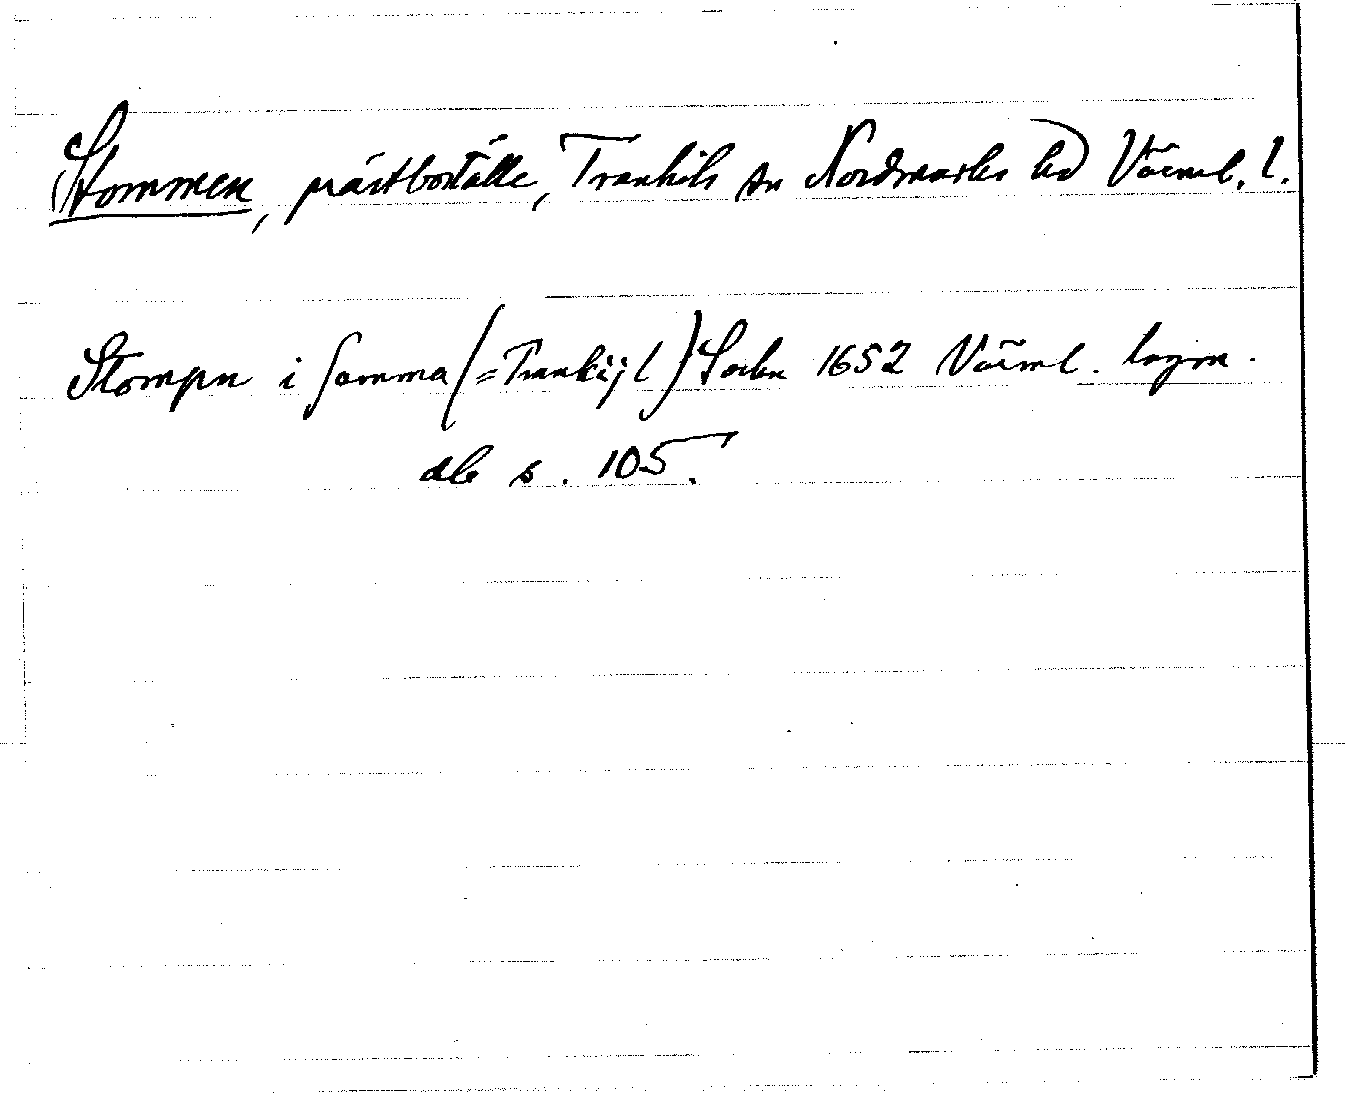 Stommen, prästboställe, Trankils sn Nordmarks hd Värml. l.
Stompn i samma (= Trankijl) Sockn 1652 Värml. lagm.
db s. 105.